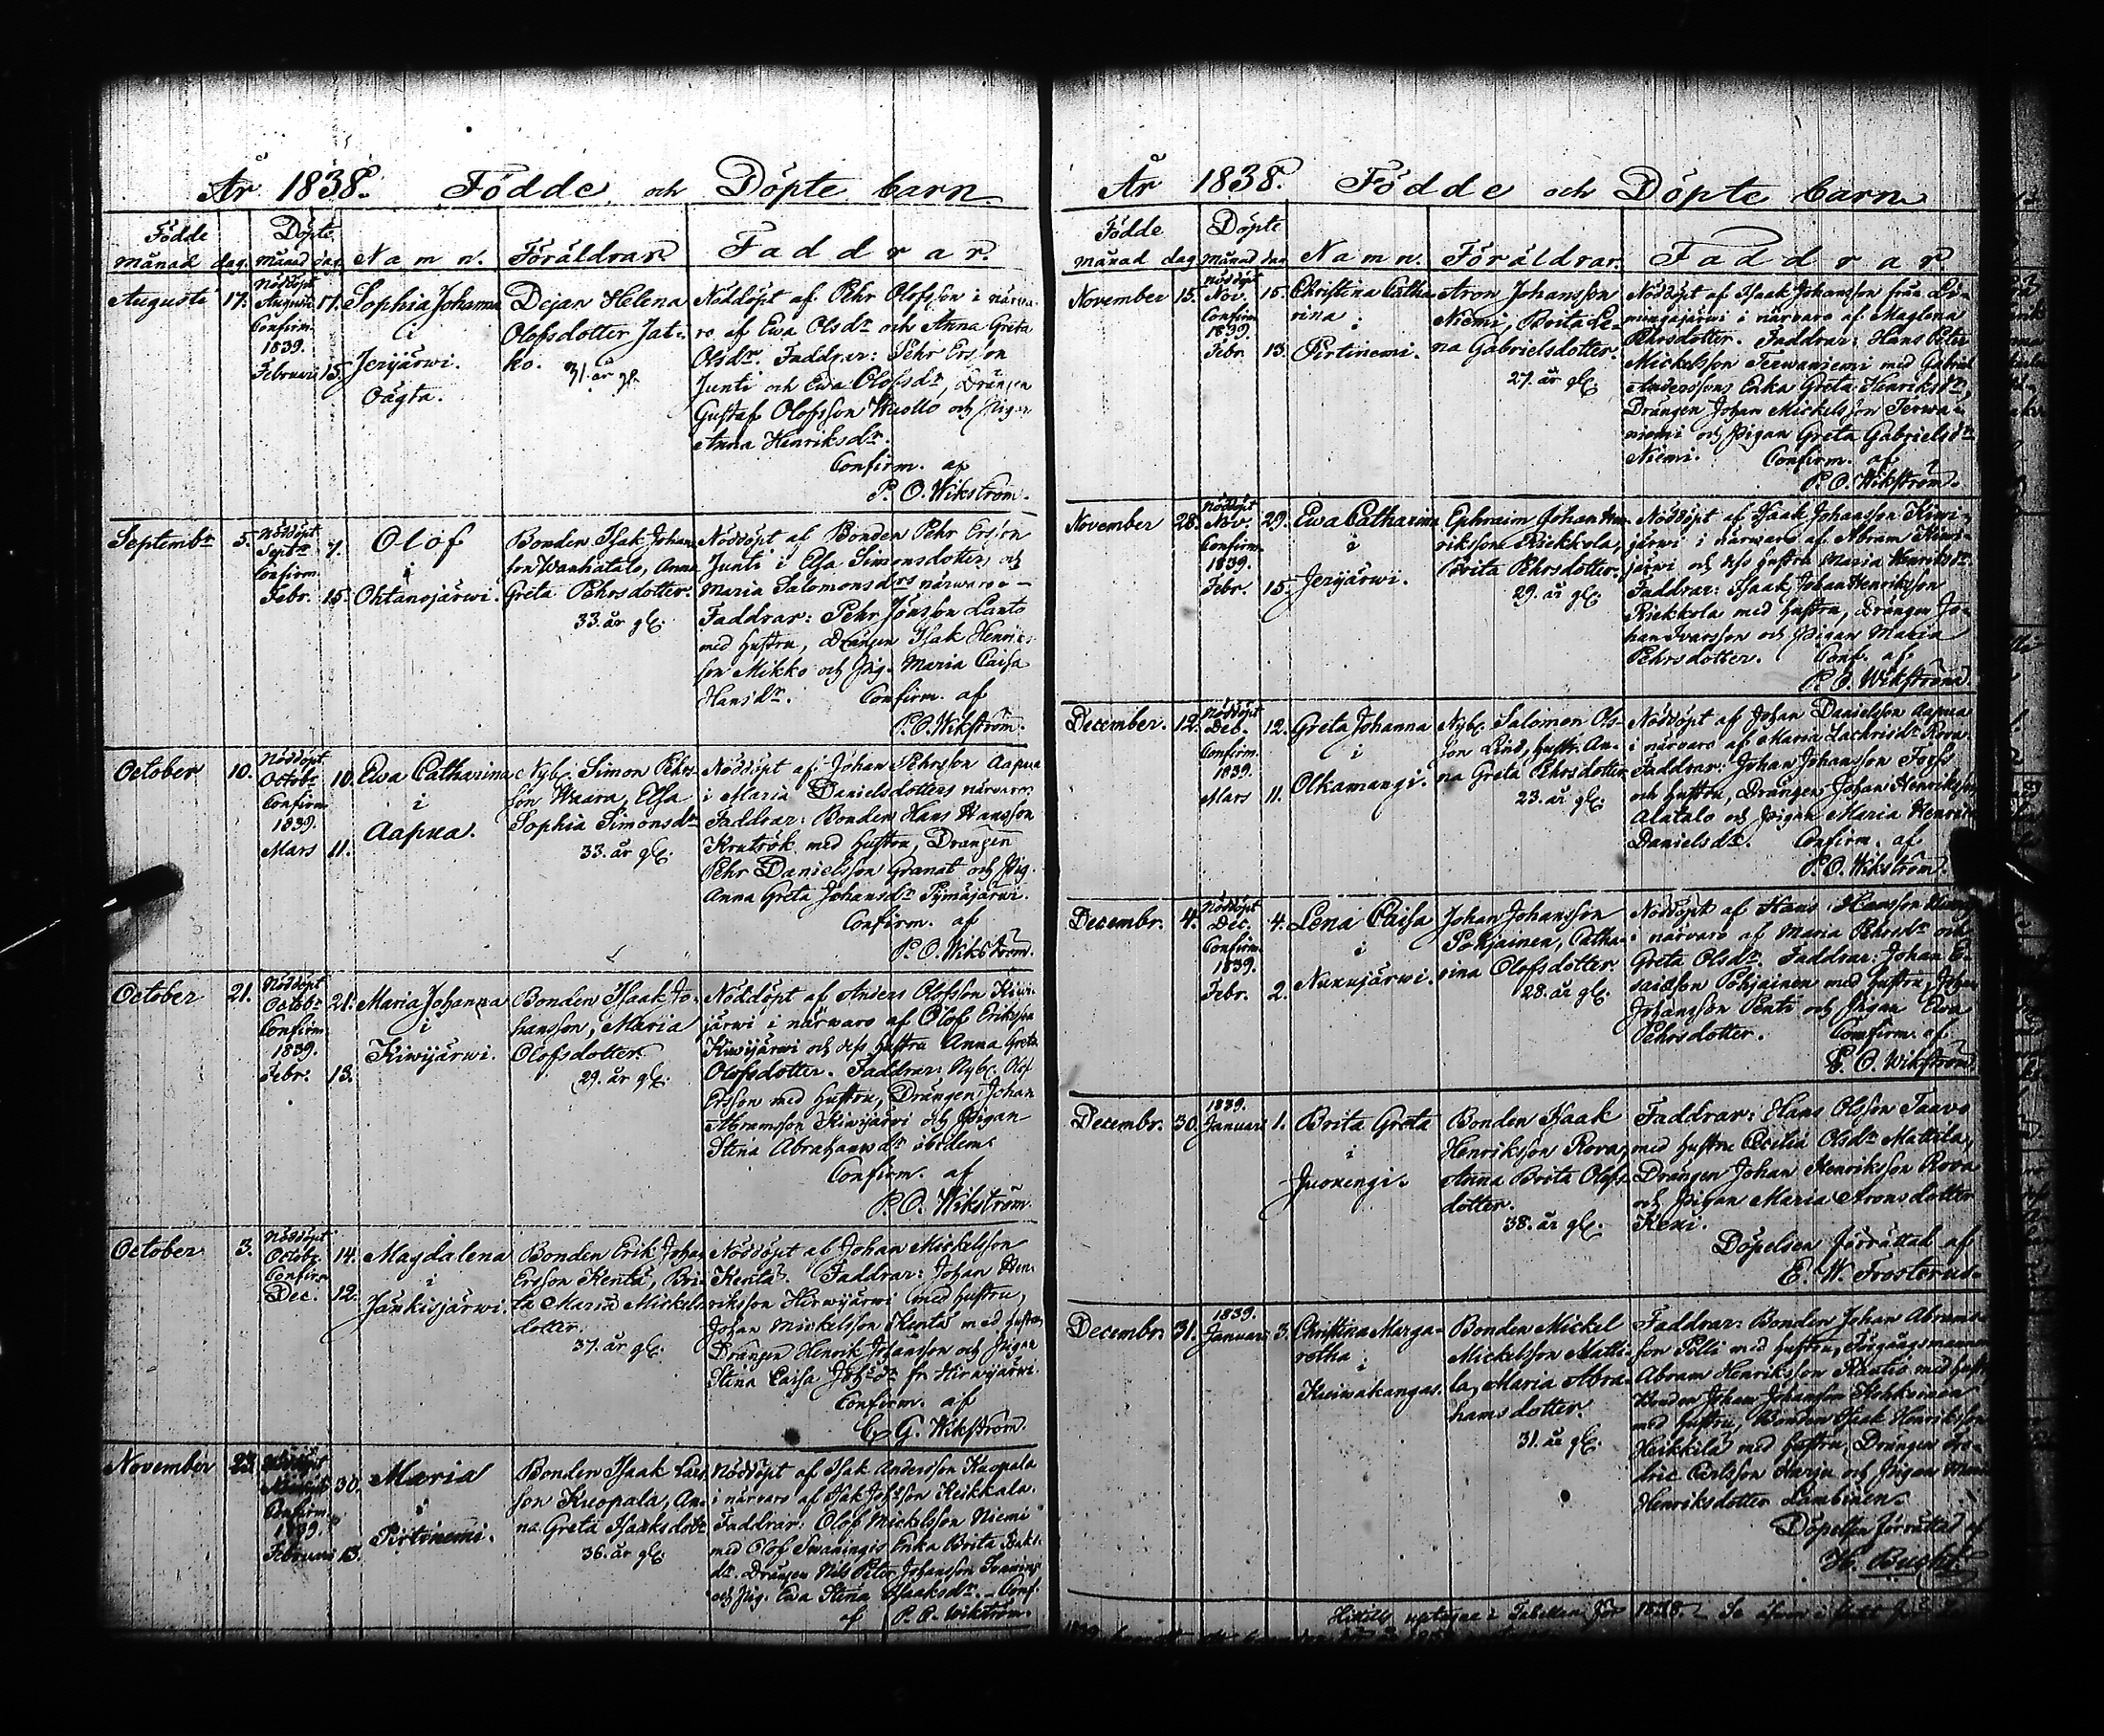 År 1838. Födde och Döpte barn.
Födde Döpte
månad dag. månad dag. Namn. Föräldrar. Faddrar.
Augusti 17. Nöddöpt Augusti 17. Confirm. 1839. Februari 15.
Sophia Johanna
i
Jerijärwi.
Oägta.
Dejan Helena
Olofsdotter Jat-
ko. 31. år gl.
Nöddöpt af Pehr Olofsson i närwa-
ro af Ewa Olsdr och Anna Greta
Olsdr. Faddrar: Pehr Ersson
Junti och Ewa Olofsdr, Drängen
Gustaf Olofsson Wuollo och Pigan
Anna Henriksdr.
Confirm. af
P. O. Wikström.
Septembr 5. Nöddöpt Septr 7. Confirm. Febr. 15.
Olof
i
Ohtanajärwi.
Bonden Isak Johans-
son Wanhatalo, Anna
Greta Pehrsdotter.
33. år gl.
Nöddöpt af Bonden Pehr Ersson
Junti i Elsa Simonsdotters och
Maria Salomonsdrs närwaro –
Faddrar: Pehr Jönsson Lanto
med hustru, Drängen Isak Henriks-
son Mikko och Pig. Maria Caisa
Hansdr. Confirm. af
P. O. Wikström.
October 10. Nöddöpt Octobr 10. Confirm. 1839. Mars 11.
Ewa Catharina
i
Aapua.
Nyb. Simon Pehrs-
son Waara, Elsa
Sophia Simonsdr
33. år gl.
Nöddöpt af Johan Pehrsson Aapua
i Maria Danielsdotters närwaro.
Faddrar: Bonden Hans Hansson
Krutrök med hustru, Drängen
Pehr Danielsson Granat och Pig.
Anna Greta Johansdr Pymäjärwi.
Confirm. af
P. O. Wikström.
October 21. Nöddöpt Octobr 21. Confirm. 1839. Febr. 13.
Maria Johanna
i
Kiwijärwi.
Bonden Isaak Jo-
hansson, Maria
Olofsdotter.
29. år gl.
Nöddöpt af Anders Olofsson Kiwi-
järwi i närwaro af Olof Eriksson
Kiwijärwi och dess hustru Anna Greta
Olofsdotter. Faddrar: Nyb. Olof
Ersson med hustru, Drängen Johan
Abramsson Kiwijärwi och Pigan
Stina Abrahamsdr ibidem.
Confirm. af
P. O. Wikström
October 3. Nöddöpt Octobr. 14. Confirm Dec. 12.
Magdalena
i
Jänkisjärwi.
Bonden Erik Johan
Ersson Kentä, Bri-
ta Maria Mickels-
dotter.
37. år gl.
Nöddöpt af Johan Mickelsson
Kentä. Faddrar: Johan Hen-
riksson Hirwijärwi med hustru,
Johan Mickelsson Kentä med hustru,
Drängen Henrik Johansson och Pigan
Stina Caisa Johsdr fr. Hirwijärwi.
Confirm. af
C. G. Wikström.
November 23. 30. Confirm. 1839. Februari 13.
Maria
i
Pirtinemi.
Bonden Isaak Lars-
son Kuopala, An-
na Greta Isaaksdotr
36. år gl.
Nöddöpt af Isak Andersson Kuopala
i närwaro af Isak Johsson Keikkala.
Faddrar: Olof Mickelsson Niemi
med Olof Swaningis Enka Brita Isaks-
dr. Drängen Nils Peter Johansson Swaningi
och Pig. Ewa Stina Isaaksdr. – Conf.
af P. O. Wikström.
År 1838. Födde och Döpte barn.
Födde Döpte
månad dag månad dag Namn. Föräldrar. Faddrar.
November 15. Nöddöpt Nov. 15. Confirm 1839. Febr. 13.
Christina Catha-
rina
i
Pirtinemi.
Aron Johansson
Niemi, Brita Le-
na Gabrielsdotter.
27. år gl.
Nöddöpt af Isaak Johansson från
i närwaro af Maglena
Pehrsdotter. Faddrar: Hans Peter
Mickelsson Terwaniemi med Gabriel
Anderssons Enka Greta Henriksdr,
Drängen Johan Mickelsson Terwa-
niemi och Pigan Greta Gabrielsdr
Niemi. Confirm. af
P. O. Wikström.
November 28. Nöddöpt Nov. 29. Confirm. 1839. Febr. 15.
Ewa Catharina
i
Jerijärwi.
Ephraim Johan Hen-
riksson Riekkola,
Brita Pehrsdotter.
29. år gl.
Nöddöpt af Isaak Johansson Kiwi-
järwi i närwaro af Abram Kiwi-
järwi och dess hustru Maria Henriksdr.
Faddrar: Isaak Johan Henriksson
Riekkola med hustru, Drängen Jo-
han Iwarsson och Pigan Maria
Pehrsdotter. Conf. af
P. O. Wikström.
December. 12. Nöddöpt Dec. 12. Confirm. 1839. Mars 11.
Greta Johanna
i
Olkamangi.
Nyb. Salomon Ols-
son Lind, hustr. An-
na Greta Pehrsdotter
23. år gl.
Nöddöpt af Johan Danielsson Aapua
i närwaro af Maria Zachrisdr Rova.
Faddrar: Johan Johansson Fors
och hustru, Drängen Johan Henriksson
Alatalo och Pigan Maria Henrika
Danielsdr. Confirm. af
P. O. Wikström.
Decembr. 4. Nöddöpt Dec. 4. Confirm. 1839. Febr. 2.
Lena Caisa
i
Nuxujärwi.
Johan Johansson
Pohjainen, Catha-
rina Olofsdotter.
28. år gl.
Nöddöpt af Hans Hansson
i närwaro af Maria Pehrsdr och
Greta Olsdr. Faddrar: Johan E-
saiasson Pohjainen med hustru, Johan
Johansson Penti och Pigan Ewa
Pehrsdotter. Confirm. af
P. O. Wikström
Decembr. 30. 1839. Januari 1.
Brita Greta
i
Juoxengi.
Bonden Isaak
Henriksson Rova,
Anna Brita Olofs-
dotter.
38. år gl.
Faddrar: Hans Olsson Taavo
med hustru Cecilia Olsdr Mattila,
Drängen Johan Henriksson Rova
och Pigan Maria Aronsdotter
Kexi.
Döpelsen förrättad af
E. W. Frosterus.
Decembr. 31. 1839. Januari 3.
Christina Marga-
retha
i
Kuiwakangas.
Bonden Mickel
Mickelsson Matti-
la, Maria Abra-
hamsdotter.
31. år gl.
Faddrar: Bonden Johan Abrams-
son Palli med hustru, Förgångsmannen
Abram Henriksson Raatio med hustr,
Bonden Johan Johansson
med hustru, Bonden Isaak Henriksson
Heikkilä med hustru, Drängen
Carlsson Harju och Pigan Maria
Henriksdotter Lambinen.
Döpelsen förrättad af
H. Bucht
Hittills uptagne i Tabellen för 1838.